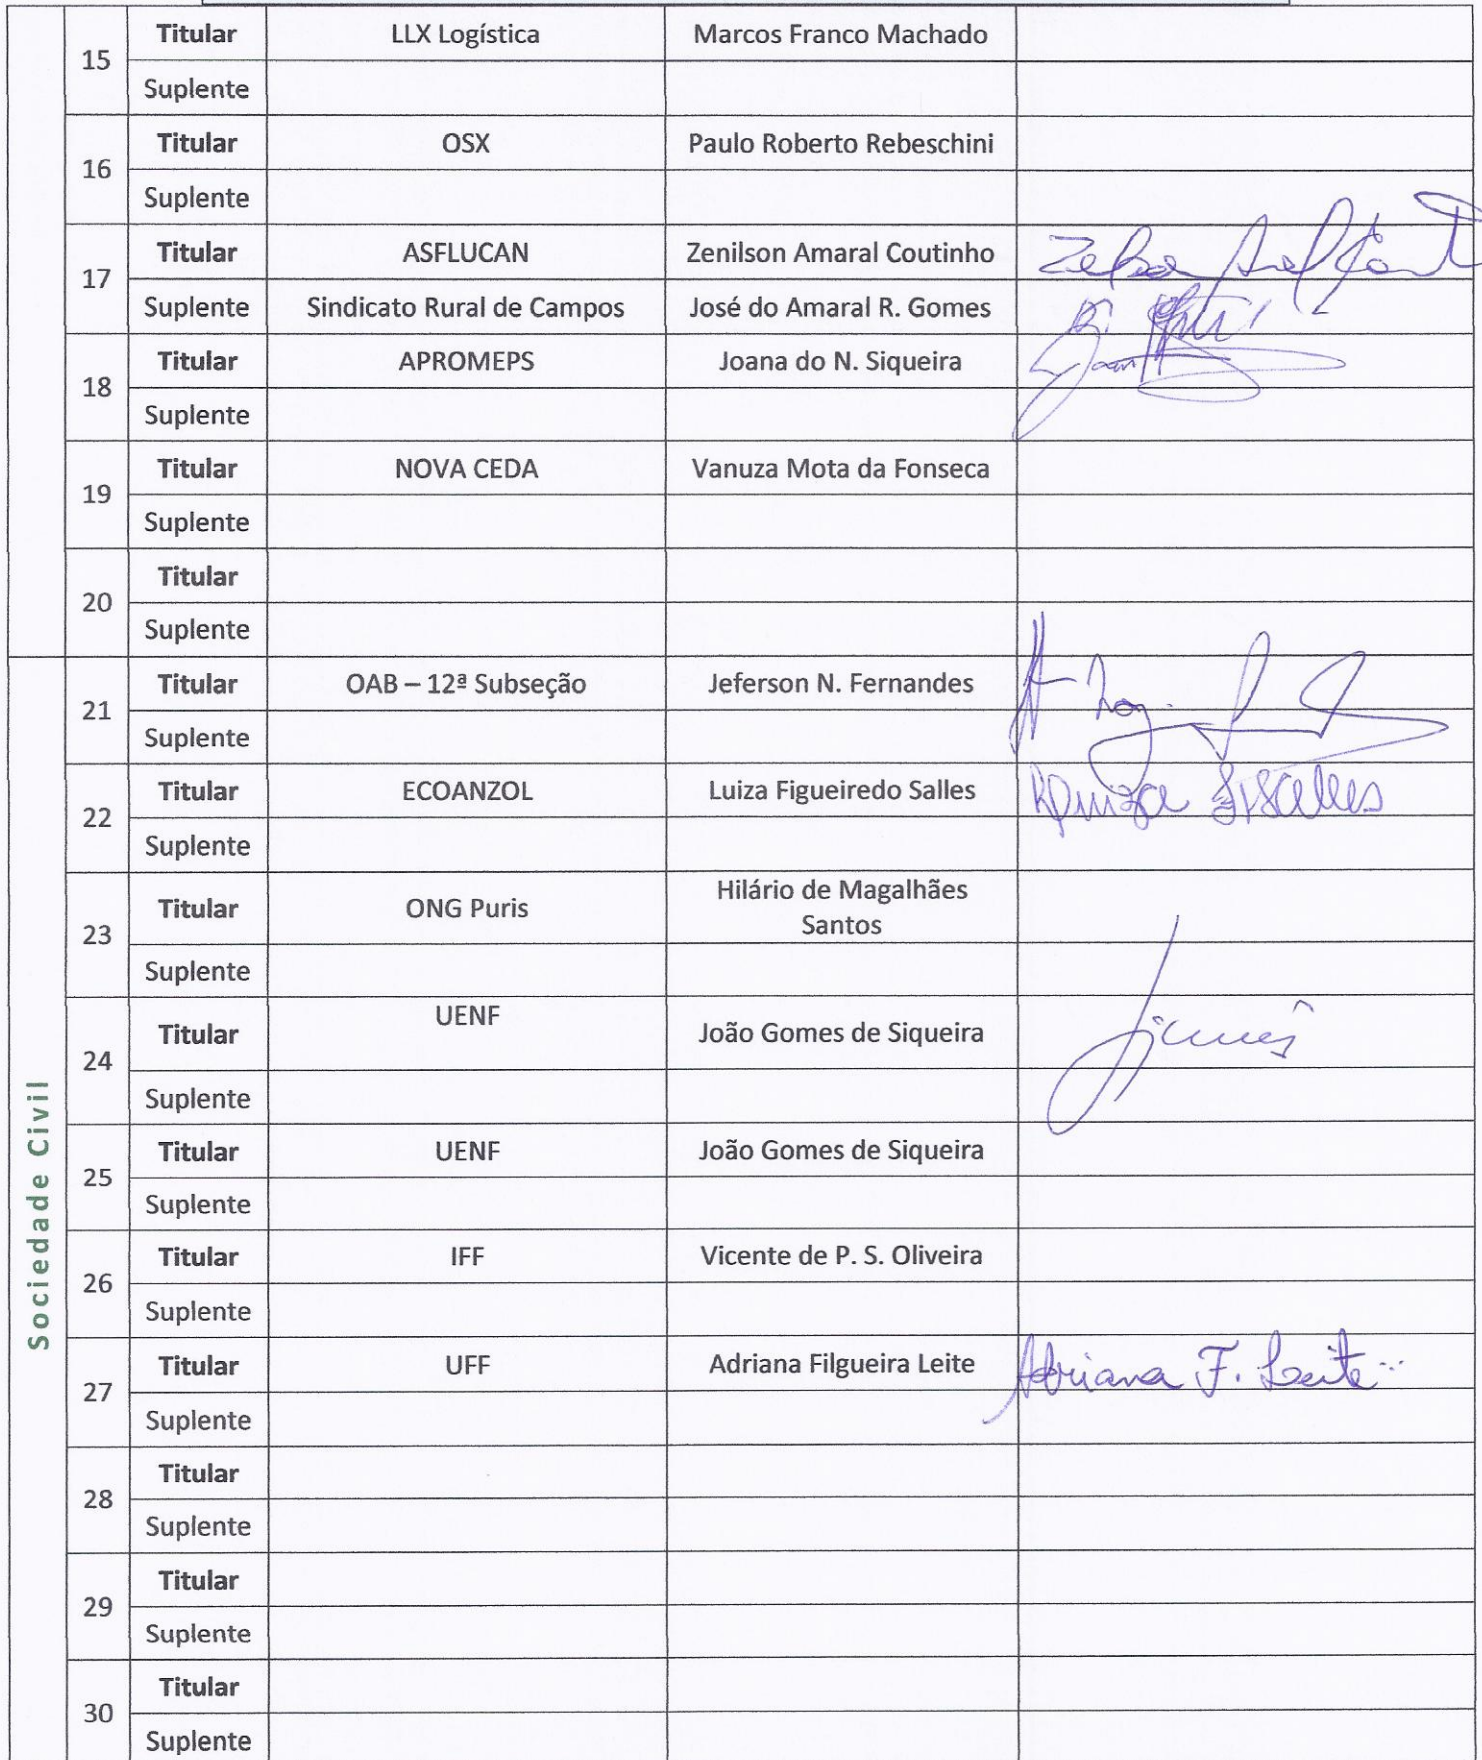 15 Titular LLX Logística Marcos Franco Machado
Suplente
16 Titular OSX Paulo Roberto Rebeschini
Suplente
17 Titular ASFLUCAN Zenilson Amaral Coutinho
Suplente Sindicato Rural de Campos José do Amaral R. Gomes
18 Titular APROMEPS Joana do N. Siqueira
Suplente
19 Titular NOVA CEDA Vanuza Mota da Fonseca
Suplente
20 Titular
Suplente
Sociedade Civil
21 Titular OAB – 12ª Subseção Jeferson N. Fernandes
Suplente
22 Titular ECOANZOL Luiza Figueiredo Salles
Suplente
23 Titular ONG Puris Hilário de Magalhães
Santos
Suplente
24 Titular UENF João Gomes de Siqueira
Suplente
25 Titular UENF João Gomes de Siqueira
Suplente
26 Titular IFF Vicente de P. S. Oliveira
Suplente
27 Titular UFF Adriana Filgueira Leite Adriana F. Leite
Suplente
28 Titular
Suplente
29 Titular
Suplente
30 Titular
Suplente